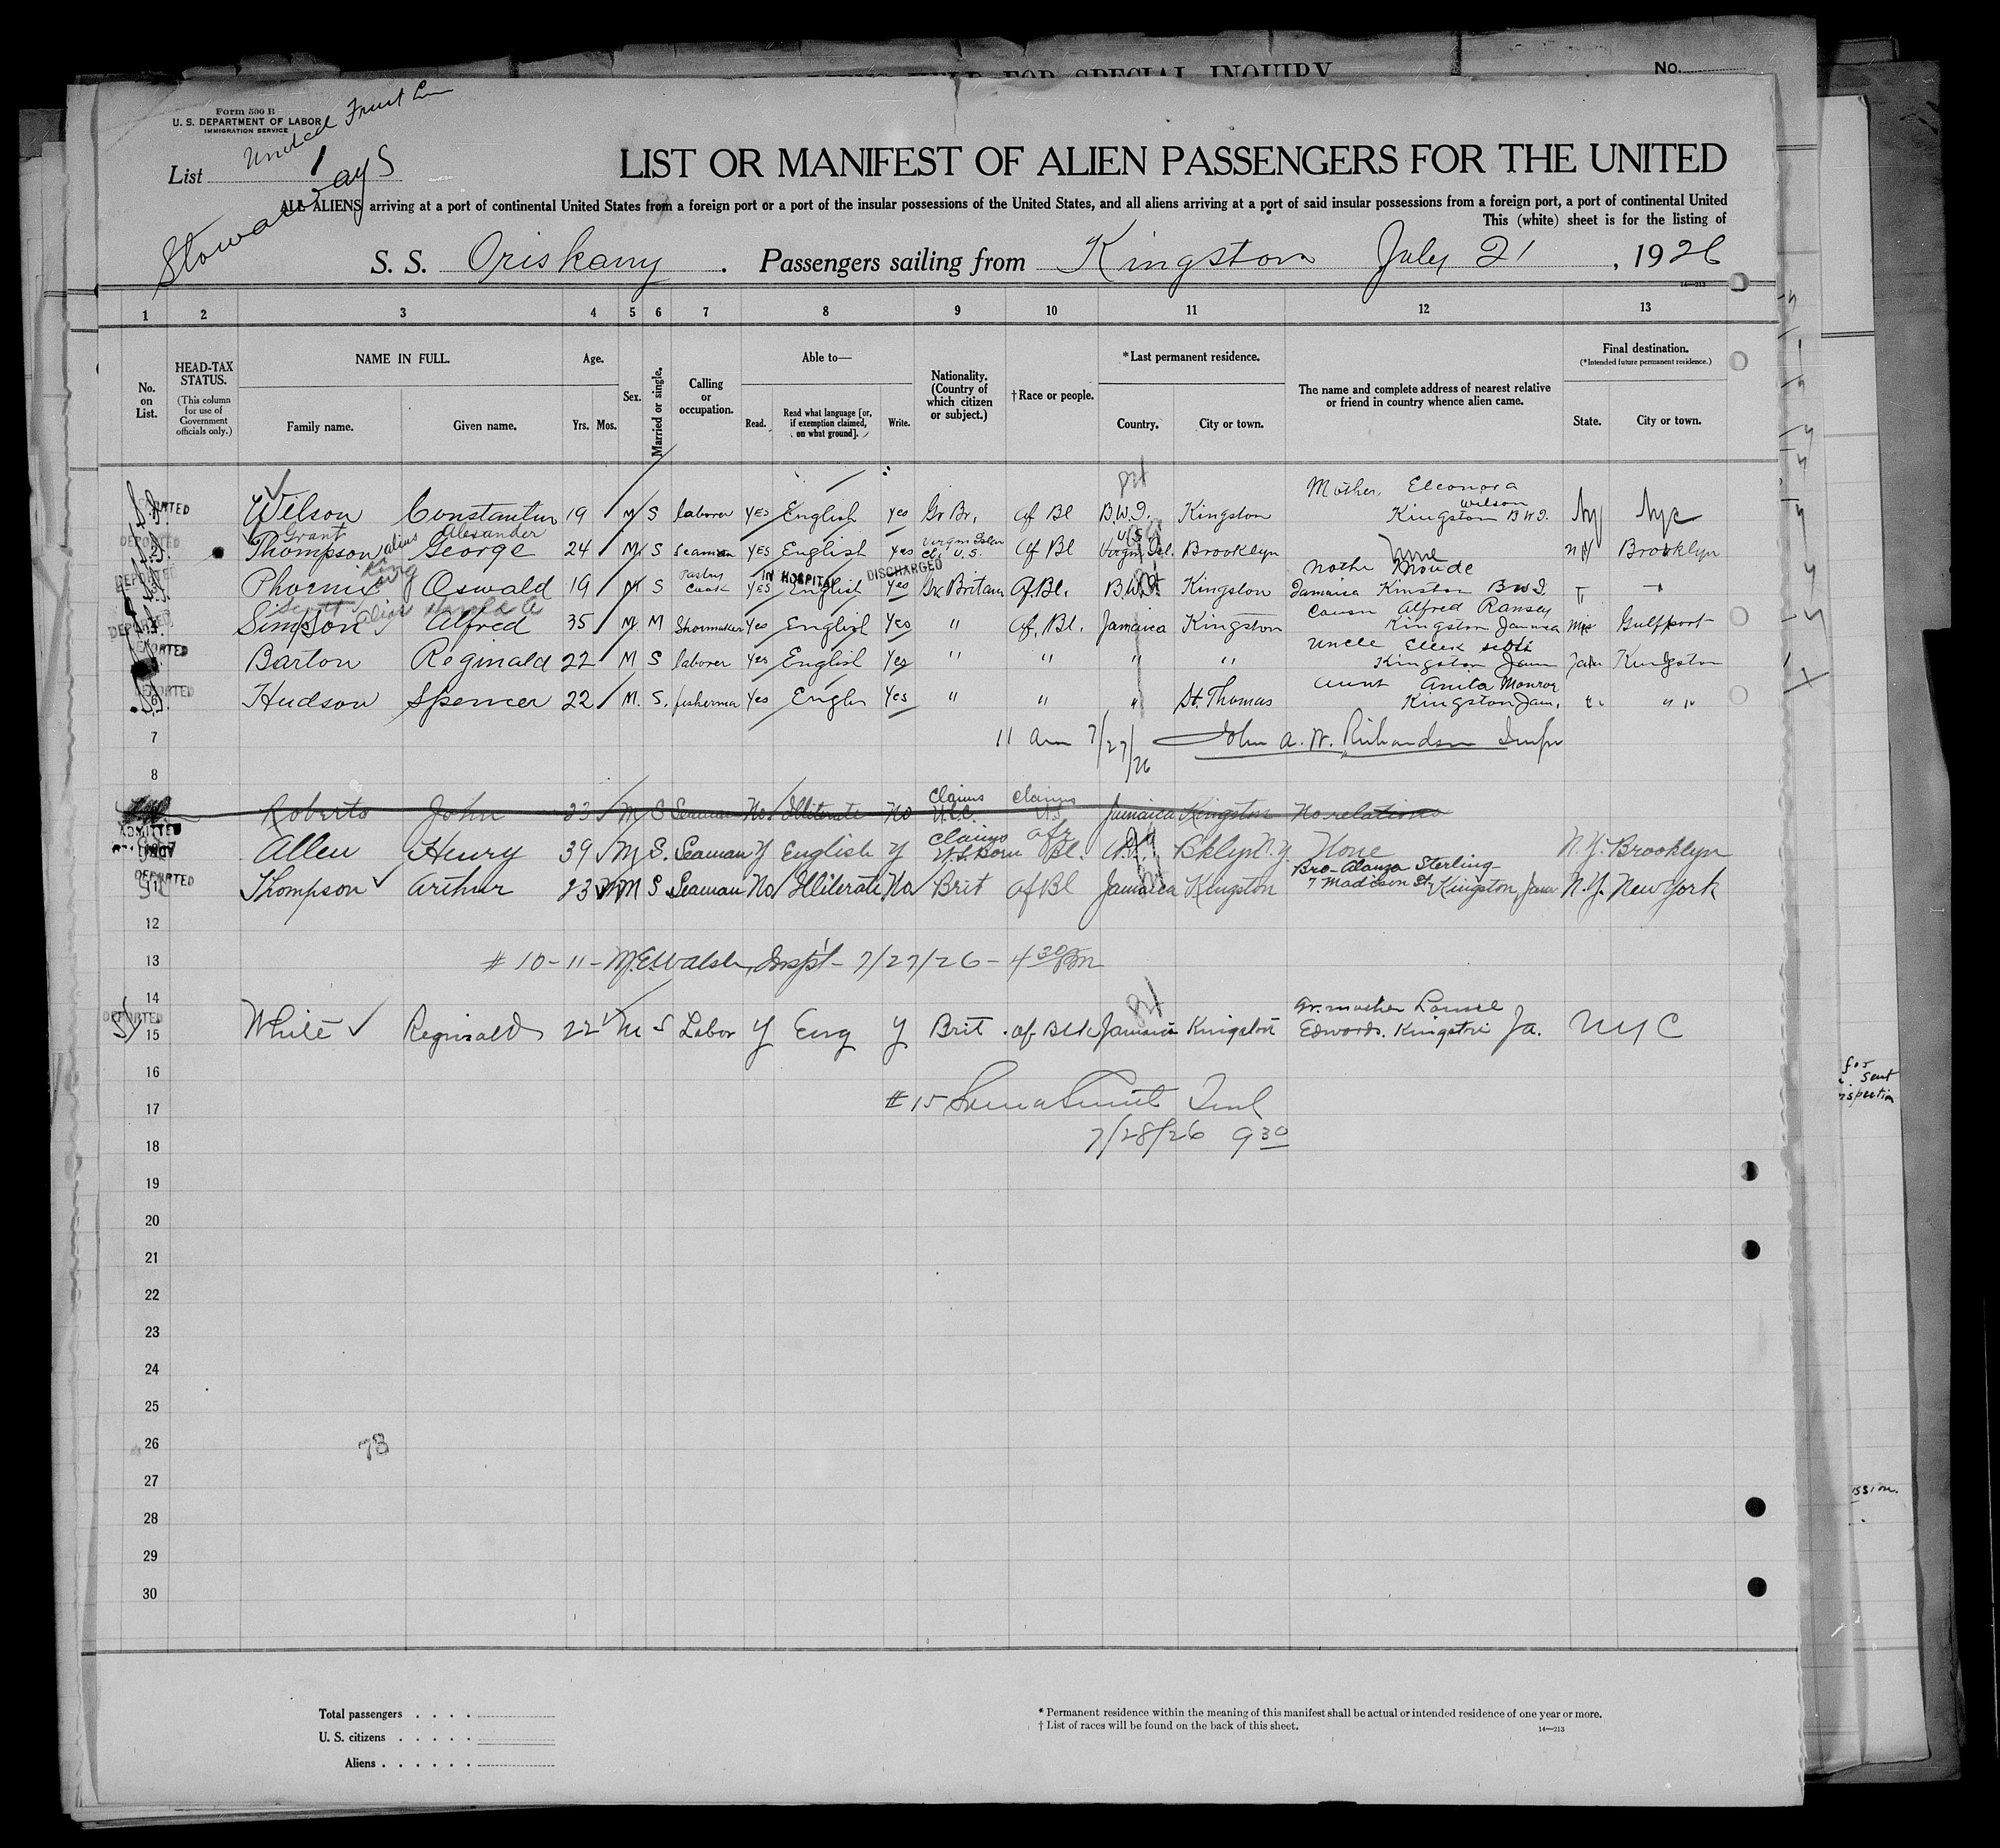 ALIENS HELD FOR SPECIAL INQUIRY
No.
Form 500 B
U. S. DEPARTMENT OF LABOR
IMMIGRATION SERVICE
United Fruit
List 1
Stowaways
LIST OR MANIFEST OF ALIEN PASSENGERS FOR THE UNITED
ALL ALIENS arriving at a port of continental United States from a foreign port or a port of the insular possessions of the United States, and all aliens arriving at a port of said insular possessions from a foreign port, a port of continental United
This (white) sheet is for the listing of
S. S. Oriskany . Passengers sailing from Kingston July 21 , 1926
14—213
1 2 3 4 5 6 7 8 9 10 11 12 13
No. on List.
HEAD-TAX STATUS.
(This column for use of Government officials only.)
NAME IN FULL.
Family name. Given name.
Age.
Yrs. Mos.
Sex.
Married or single.
Calling or occupation.
Able to—
Read. Read what language [or, if exemption claimed, on what ground]. Write.
Nationality. (Country of which citizen or subject.)
† Race or people.
*Last permanent residence.
Country. City or town.
The name and complete address of nearest relative or friend in country whence alien came.
Final destination.
(*Intended future permanent residence.)
State. City or town.
Mother, Eleonora
DEPORTED Wilson Constantin 19 M S laborer yes English yes Gr Br. Af Bl B.W.I. Kingston Wilson Kingston B W I. Ny Nyc
Grant alias Alexander
DEPORTED 2 Thompson George 24 M S Seaman yes English yes Virgin Islan U.S. Af Bl U.S. Virgin Isl. Brooklyn None N Y Brooklyn
King
DEPORTED Phoenix Oswald 19 M S Pastry Cook yes IN HOSPITAL English DISCHARGED yes Gr Britain Af Bl. B.W.I. Kingston Mothe Moude Jamaica Kinston B W I. " "
Scott alias Harold A
DEPORTED Simpson Alfred 35 M M Shoemaker yes English yes " Af. Bl. Jamaica Kingston Cousin Alfred Ransey Kingston Jamaica Mis Gulfport
DEPORTED Barton Reginald 22 M S laborer yes English yes " " " " Uncle Scott Kingston Jam Jam Kingston
DEPORTED 6 Hudson Spencer 22 M. S. fisherma yes Englis yes " " " St. Thomas Aunt Anita Monroe Kingston Jam. " " "
7 11 am 7/27/26 John A. W. Richardson Inspr
8
Roberts John 23 M S Seaman No Illiterate No Claims U.S.C. Claims U.S. Jamaica Kingston No relations
ADMITTED Allen Henry 39 M S. Seaman Y English Y Claims U.S. Born Afr Bl. U.S. Bklyn N.Y. None N.Y. Brooklyn
DEPORTED 11 Thompson Arthur 23 M S Seaman No Illiterate No Brit Af Bl Jamaica Kingston Bro-Alanza Sterling 7 Madison St, Kingston, Jama N.Y. New York
12
13 # 10-11- M.E. Walsh, Inspt- 7/27/26 - 4 30 Pm
14
DEPORTED 15 White Reginald 22 M S Labor Y Eng Y Brit. Af Blk Jamaica Kingston Gr. mother Edwards. Kingston Ja. N Y C
16
17 # 15
18 7/28/26 9 30
19
20
21
22
23
24
25
26 73
27
28
29
30
for
sent
inspection
Total passengers . . . .
U. S. citizens . . . . .
Aliens . . . . . .
* Permanent residence within the meaning of this manifest shall be actual or intended residence of one year or more.
† List of races will be found on the back of this sheet.
14—213